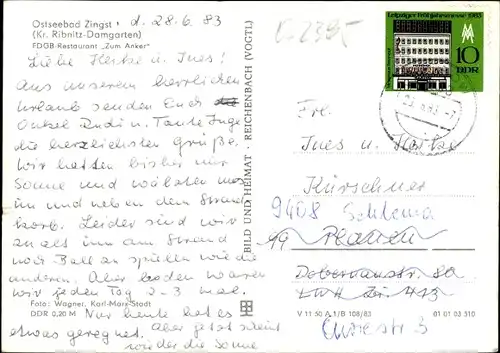 Ostseebad Zingst, d. 28.6.83
(Kr. Ribnitz-Damgarten)
FDGB-Restaurant „Zum Anker"
Liebe Heike u. Ines!
Aus unserem herrlichen
Urlaub senden Euch
Onkel Rudi u. Tante Inge
die herzlichsten Grüße.
Wir hatten bisher nur
Sonne und wälzten uns
in und neben dem Strand
korb. Leider sind wir
zu alt um am Strand
noch Ball zu spielen wie die
anderen. Aber baden waren
wir jeden Tag 2-3 mal.
Foto: Wagner, Karl-Marx-Stadt
DDR 0,20 M
Nur heute hat es
etwas geregnet. Aber jetzt scheint
wieder die Sonne
BILD UND HEIMAT · REICHENBACH (VOGTL)
Leipziger Frühjahrsmesse 1983
10
DDR
Fr.
Ines u. Heike
Kürschner
9408 Schlema
99 Plauen
V 11 50 A 1/B 108/83
01 01 03 310